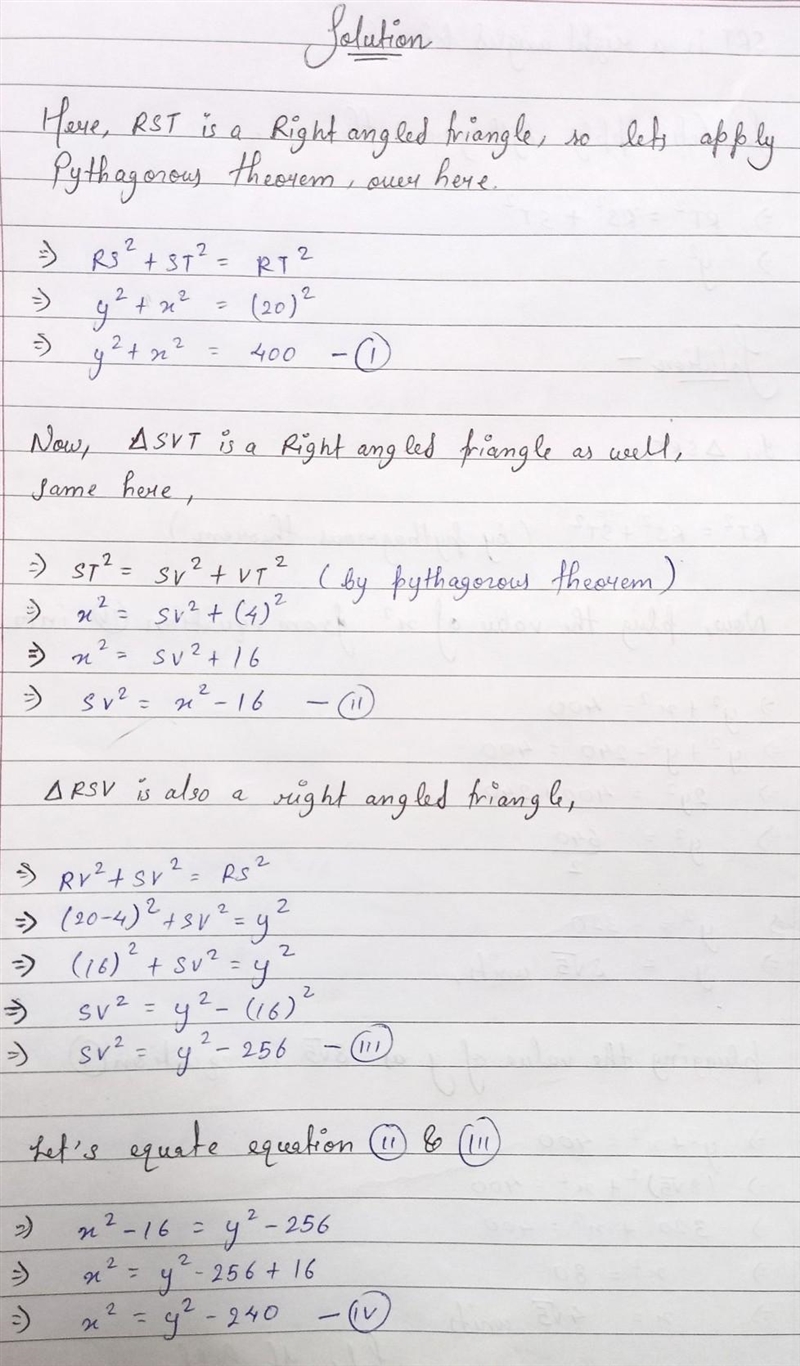 Solution
Here, RST is a Right angled triangle, so lets apply
Pythagorous theorem, over here.
⇒ RS² + ST² = RT²
⇒ y² + x² = (20)²
⇒ y² + x² = 400 – (I)
Now, ΔSVT is a Right angled triangle as well,
same here,
⇒ ST² = SV² + VT² (by pythagorous theorem)
⇒ x² = SV² + (4)²
⇒ x² = SV² + 16
⇒ SV² = x² - 16 – (II)
Δ RSV is also a right angled triangle,
⇒ RV² + SV² = RS²
⇒ (20-4)² + SV² = y²
⇒ (16)² + SV² = y²
⇒ SV² = y² - (16)²
⇒ SV² = y² - 256 – (III)
Let's equate equation (II) & (III)
⇒ x² - 16 = y² - 256
⇒ x² = y² - 256 + 16
⇒ x² = y² - 240 – (IV)